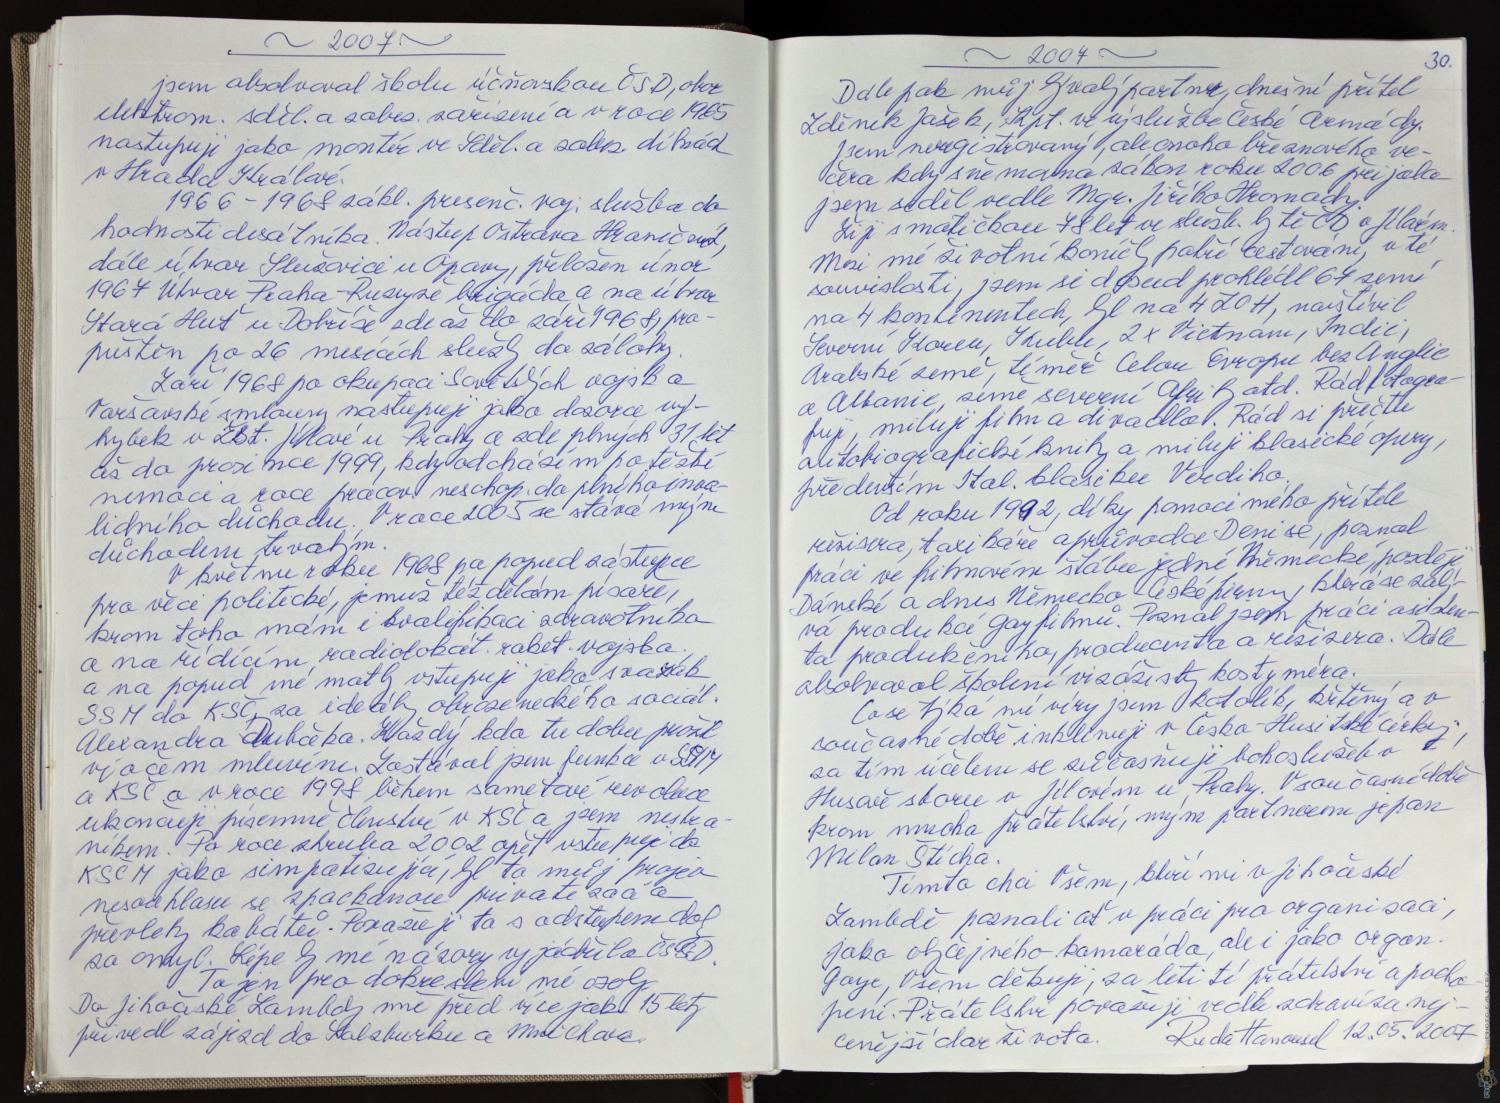 ~ 2007 ~
jsem absolvoval školu účňovskou ČSD, obor
elektrom. sděl. a zabez. zařízení a v roce 1965
nastupuji jako montér ve Sděl. a zabez
v Hradci Králové.
1966 - 1968 zákl. presenč. voj. služba do
hodnosti desátníka. Nástup Ostrava
dále útvar Slušovice u Opavy, přeložen únor
1967 Útvar Praha-Ruzyně brigáda a na útvar
Stará Huť u Dobříše zde až do září 1968, pro-
puštěn po 26 mesících služby do zálohy.
Září 1968 po okupaci Sovětských vojsk a
Varšavské smlouvy nastupuji jako dozorce vý-
hybek v žst. Jílové u Prahy a zde plných 31 let
až do prosince 1999, kdy odcházím po těžké
nemoci a roce pracov. neschop. do plného inva-
lidního důchodu. V roce 2005 se stává mým
důchodem trvalým.
V květnu roku 1968 po popud zástupce
pro věci politické, jemuž též dělám písaře,
krom toho mám i kvalifikaci zdravotníka
a na řídícím radiolokát. raket. vojska.
a na popud mé matky vstupuji jako svazák
SSM do KSČ, za ideály obrozeneckého sociál.
Alexandra Dubčeka. Každý kdo tu dobu prožil
ví o čem mluvím. Zastával jsem funkce v SSM
a KSČ a v roce 1998 během sametové revoluce
ukončuji písemně členství v KSČ a jsem nestra-
níkem. Po roce zhruba 2002 opět vstupuji do
KSČM jako simpatizující, byl to můj projev
nesouhlasu se zpackanou privatizací a
převleky kabátů. Považuji to s odstupem doby
za omyl. Lépe by mé názory vyjádřila ČSSD.
To jen pro dokreslení mé osoby.
Do Jihočeské Lambdy mne před více jak 15 lety
přivedl zájezd do Salzburku a Mnichova.
~ 2007 ~
30.
Dále pak můj bývalý partner, dnešní přítel
Zdeněk Jašek, Kpt. ve výslužbě České Armády.
Jsem neregistrovaný, ale onoho březnového ve-
čera kdy sněmovna zákon roku 2006 přijala
jsem seděl vedle Mgr. Jiřího Hromady.
Žiji s matičkou 78 let ve služb. bytě ČD v Jílovém.
Mezi mé životní koníčky patří cestování, v té
souvislosti, jsem si dosud prohlédl 67 zemí
na 4 kontinentech, byl na 4 ZOH, navštívil
Severní Koreu, Kubu, 2x Vietnam, Indii,
Arabské země, téměř celou Evropu bez Anglie
a Albanie, země severní Afriky atd. Rád fotogra-
fuji, miluji film a divadlo. Rád si přečtu
autobiografické knihy a miluji klasické opery,
především Ital. klasiku Verdiho.
Od roku 1992, díky pomoci mého přítele
režisera, taxikáře a průvodce Denise, poznal
práci ve filmovém štábu jedné Německé, později
Dánské a dnes Německo-České firmy, která se zabý-
vá produkcí gay filmů. Poznal jsem práci asisten-
ta produkčního, producenta a režiséra. Dále
absolvoval školení vizážisty kostyméra.
Co se týká mé víry jsem katolík, křtěný a v
současné době inklinuji v Česko-Husitské církvi,
za tím účelem se zůčasňuji bohoslužeb v
Husově sboru v Jílovém u Prahy. V současné době
krom mnoha přátelství, mým partnerem je pan
Milan Štícha.
Tímto chci Všem, kteří mi v Jihočeské
Lambdě poznali ať v práci pro organizaci,
jako obyčejného kamaráda, ale i jako organ.
gaye, Všem děkuji, za letité přátelství a pocho-
pení. Přátelství považuji vedle zdraví za nej-
cenější dar života. Ruda Hanousel 12.05.2007